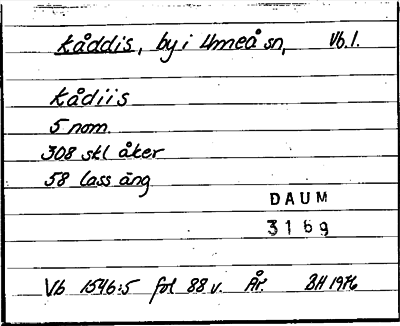 Kåddis, by i Umeå sn, Vb.l.
Kådiis
5 nom.
308 skl åker
58 lass äng
DAUM
3169
Vb 1546:5 fol 88 v. År. BH 1976